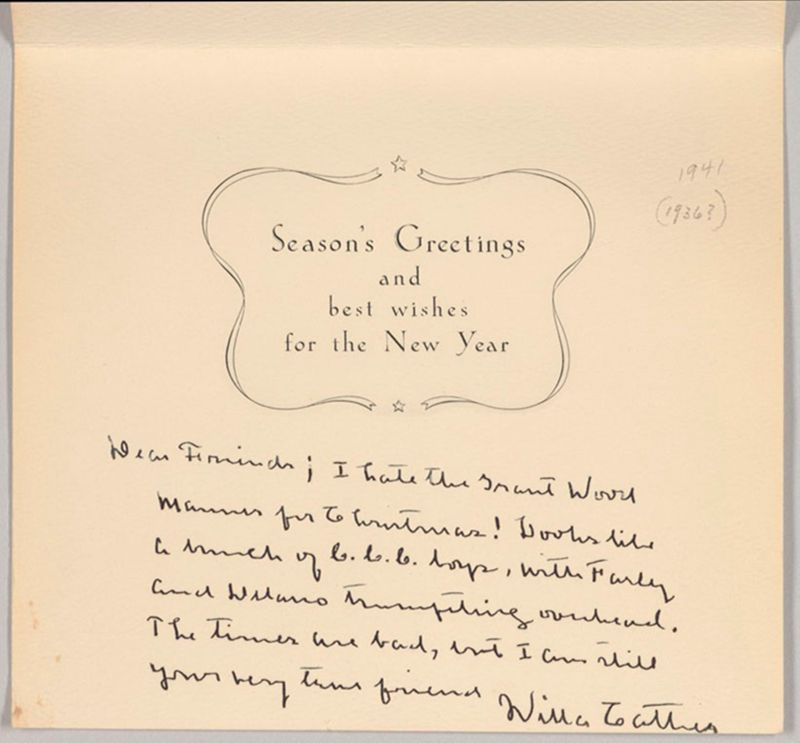 1941
(1936?)
Season's Greetings
and
best wishes
for the New Year
Dear Friends; I hate the Grant Wood
manner for Christmas! Looks like
a bunch of C.C.C. boys, with Farley
and Delano trumpeting overhead.
The times are bad, but I am still
your very true friend Willa Cather